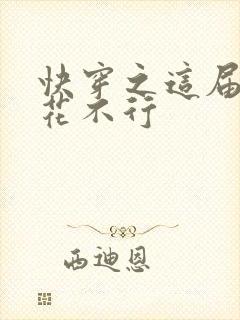 快穿之這屆
花不行
西迪恩